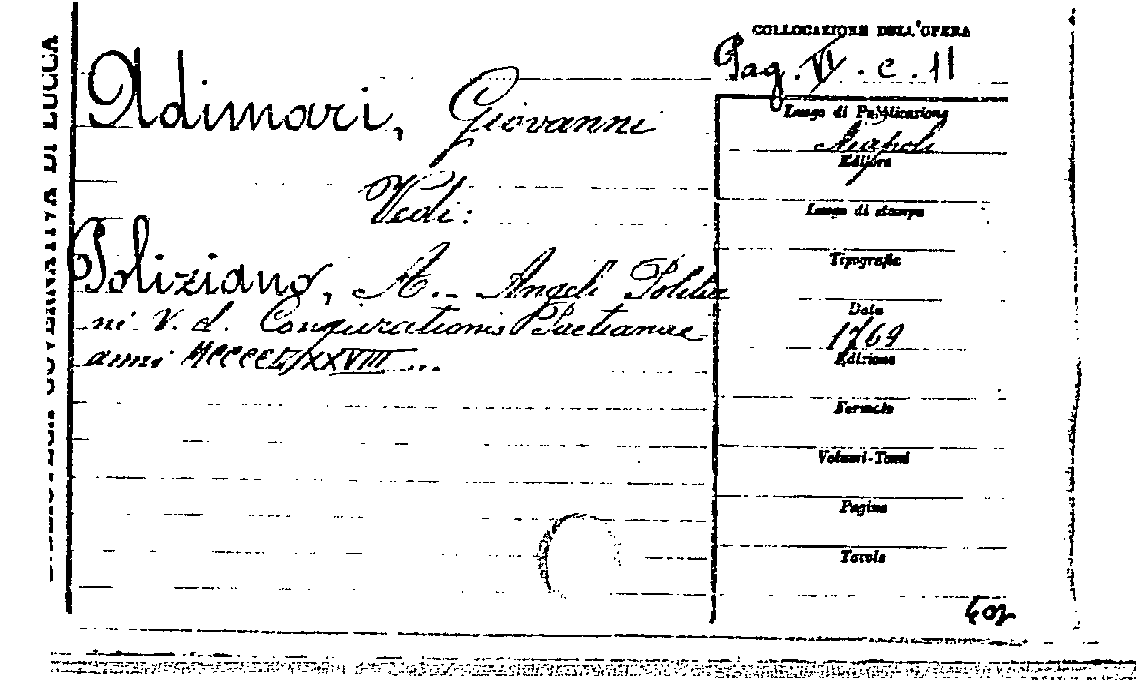 BIBLIOTECA GOVERNATIVA DI LUCCA
COLLOCAZIONE DELL'OPERA
Pag. VI. c. 11
Adimari, Giovanni
Vedi:
Poliziano, A. - Angeli Politia
ni V. d. Conjurationis Pactianae
anni MCCCCLXXVIII ...
Luogo di Pubblicazione
Napoli
Editore
Luogo di stampa
Tipografia
Data
1769
Edizione
Formato
Volumi-Tomi
Pagine
Tavole